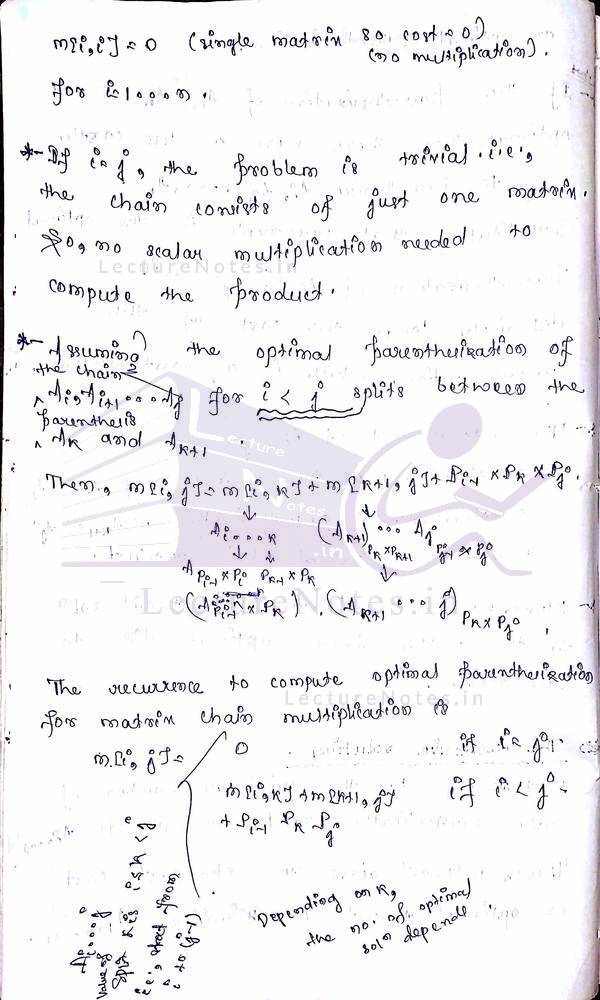 m[i,j] = 0 (single matrix so, cost = 0.)
(no multiplication).
for i=1...n.
*- If i=j, the problem is trivial. i.e.,
the chain consists of just one matrix.
So, no scalar multiplication needed to
LectureNotes.in
compute the product.
*- Assuming the optimal parenthesization of
the chain
Ai, Ai+1 ... Aj for i < j splits between the
parenthesis
AK and AK+1
Lecture
Then, m[i,j] = m[i,k] + m[k+1, j] + Pi-1 × PK × Pj.
Notes
Ai...k (AK+1) ... Aj
PK×PK+1 Pj-1 × Pj
.in
A Pi-1 × Pi PK-1 × PK
LectureNotes.in
(A Pi-1 × PK) . (AK+1 ... j) PK × Pj
The recurrence to compute optimal parenthesization
LectureNotes.in
for matrix chain multiplication is
m[i,j] = 0 if i=j.
m[i,k] + m[k+1,j] if i < j.
+ Pi-1 PK Pj
Ai...j
value of
split k is i≤k<j
i.e., start from
i to (j-1)
Depending on k,
the no. of optimal
soln depends.